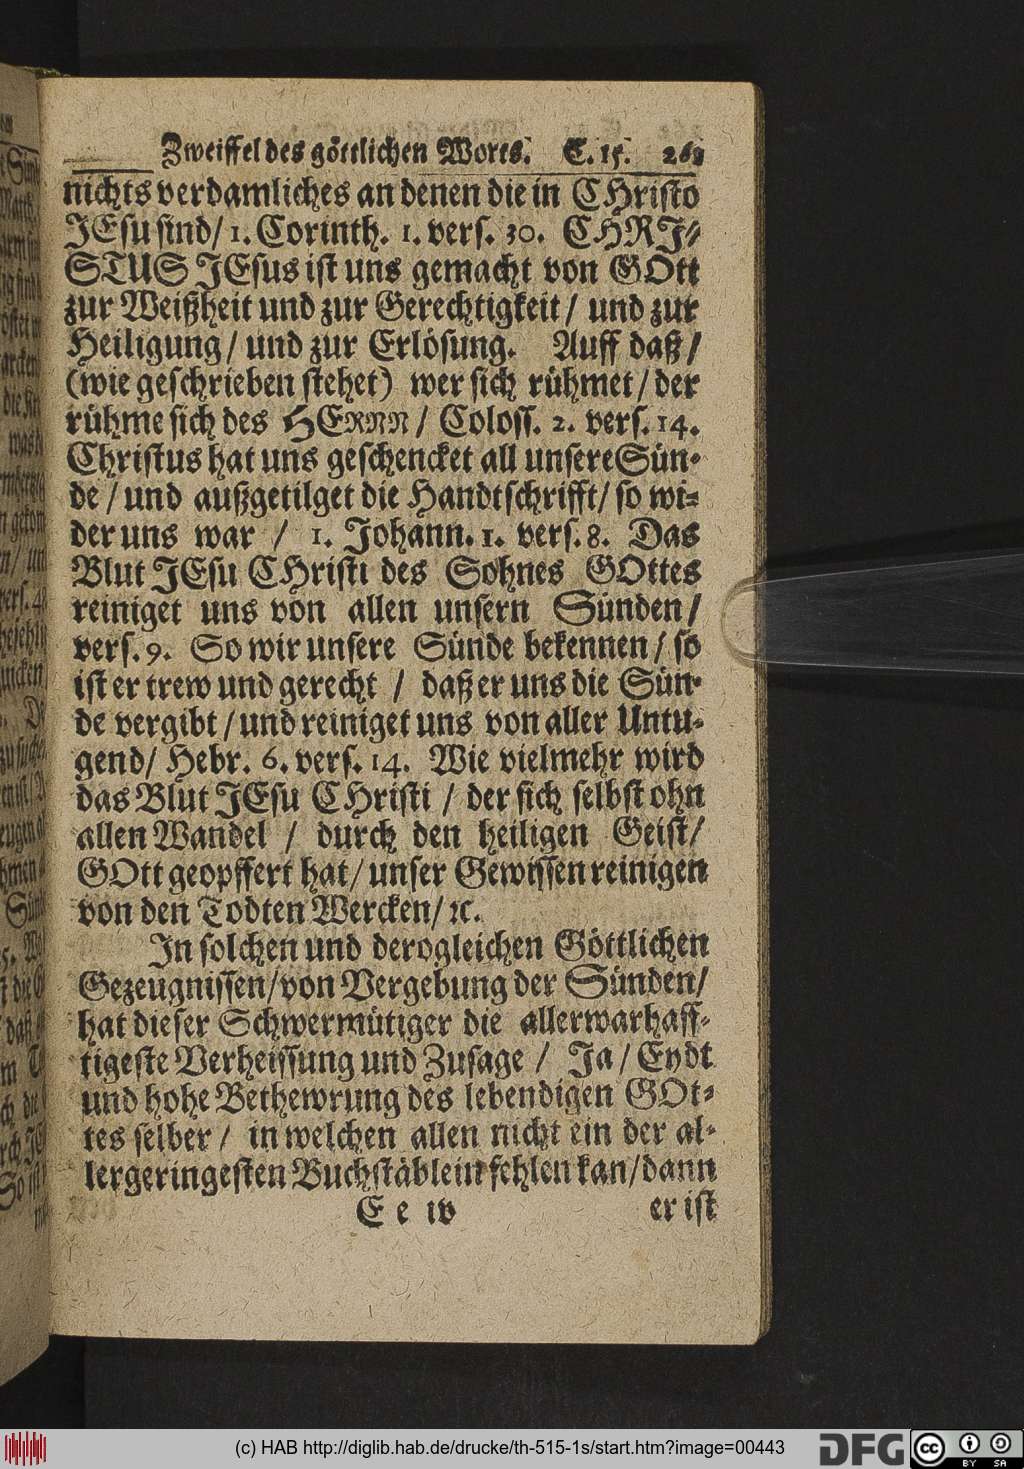 Zweiffel des göttlichen Worts. C. 15.
nichts verdamliches an denen die in CHristo
JEsu sind/ 1. Corinth. 1. vers. 30. CHRJ⸗
STUS JEsus ist uns gemacht von GOtt
zur Weißheit und zur Gerechtigkeit / und zur
Heiligung / und zur Erlösung. Auff daß /
(wie geschrieben stehet) wer sich rühmet / der
rühme sich des HERNN / Coloss. 2. vers. 14.
Christus hat uns geschencket all unsere Sün⸗
de / und außgetilget die Handtschrifft / so wi⸗
der uns war / 1. Johann. 1. vers. 8. Das
Blut JEsu CHristi des Sohnes GOttes
reiniget uns von allen unsern Sünden /
vers. 9. So wir unsere Sünde bekennen / so
ist er trew und gerecht / daß er uns die Sün⸗
de vergibt / und reiniget uns von aller Untu⸗
gend / Hebr. 6. vers. 14. Wie vielmehr wird
das Blut JEsu CHristi / der sich selbst ohn
allen Wandel / durch den heiligen Geist /
GOtt geopffert hat / unser Gewissen reinigen
von den Todten Wercken / ꝛc.
In solchen und derogleichen Göttlichen
Gezeugnissen / von Vergebung der Sünden /
hat dieser Schwermütiger die allerwarhaff⸗
tigeste Verheissung und Zusage / Ja / Eydt
und hohe Bethewrung des lebendigen GOt⸗
tes selber / in welchen allen nicht ein der al⸗
lergeringesten Buchstäblein fehlen kan / dann
E e iv er ist
(c) HAB http://diglib.hab.de/drucke/th-515-1s/start.htm?image=00443
DFG
cc BY SA